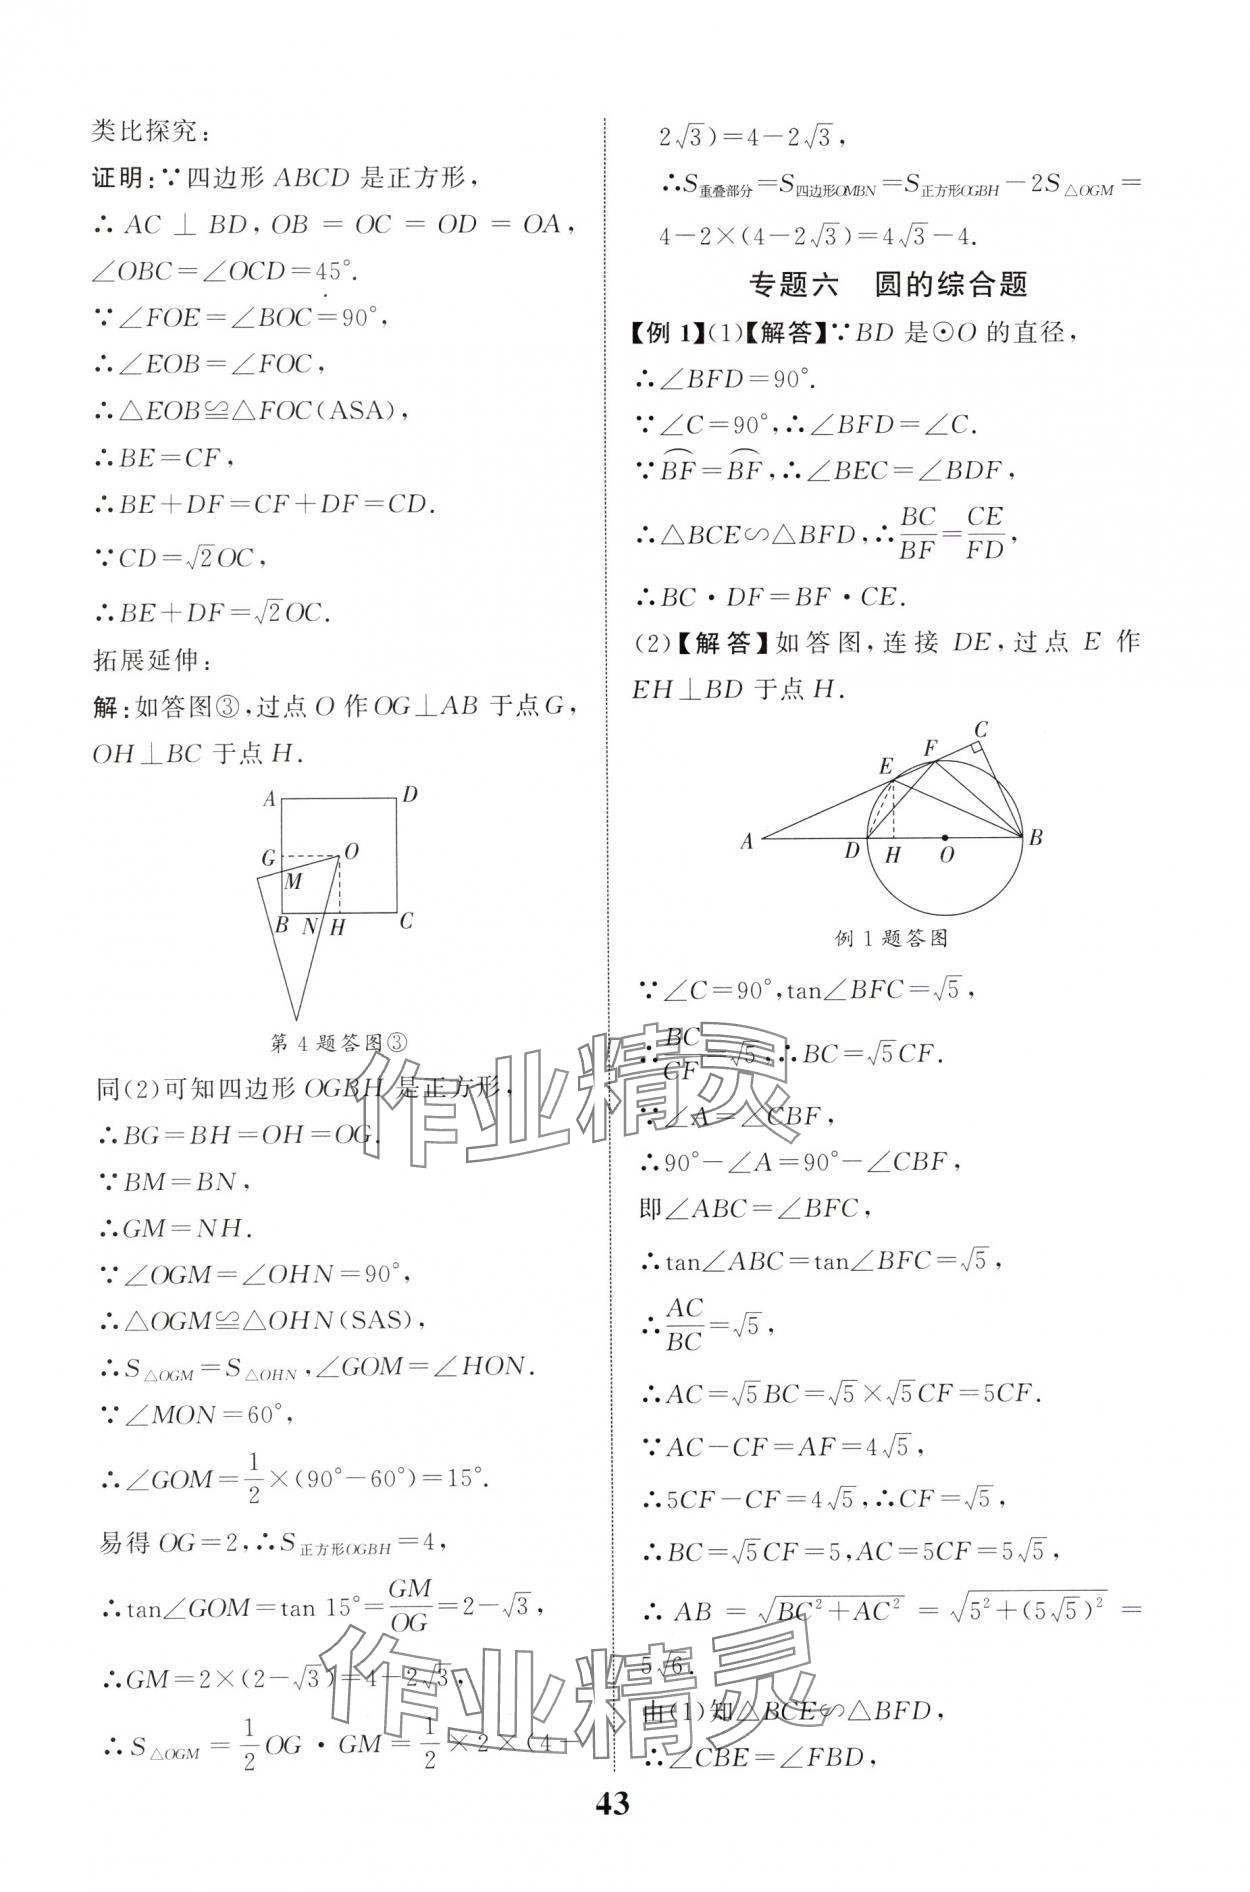 类比探究：
证明：∵四边形 ABCD 是正方形，
∴ AC ⊥ BD，OB = OC = OD = OA，
∠OBC=∠OCD=45°.
∵∠FOE=∠BOC=90°，
∴∠EOB=∠FOC，
∴△EOB≌△FOC(ASA)，
∴BE=CF，
∴BE+DF=CF+DF=CD.
∵CD=√2OC，
∴BE+DF=√2OC.
拓展延伸：
解：如答图③，过点O作OG⊥AB于点G，
OH⊥BC于点H.
A D
G O
M
B N H C
第4题答图③
同(2)可知四边形OGBH是正方形，
∴BG=BH=OH=OG.
∵BM=BN，
∴GM=NH.
∵∠OGM=∠OHN=90°，
∴△OGM≌△OHN(SAS)，
∴S△OGM=S△OHN，∠GOM=∠HON.
∵∠MON=60°，
∴∠GOM=1/2×(90°-60°)=15°.
易得OG=2，∴S正方形OGBH=4，
∴tan∠GOM=tan 15°=GM/OG=2-√3，
∴GM=2×(2-√3)=4-2√3，
∴S△OGM=1/2OG·GM=1/2×2×(4-
2√3)=4-2√3，
∴S重叠部分=S四边形OMBN=S正方形OGBH-2S△OGM=
4-2×(4-2√3)=4√3-4.
专题六 圆的综合题
【例1】(1)【解答】∵BD是⊙O的直径，
∴∠BFD=90°.
∵∠C=90°，∴∠BFD=∠C.
∵⌒BF=⌒BF，∴∠BEC=∠BDF，
∴△BCE∽△BFD，∴BC/BF=CE/FD，
∴BC·DF=BF·CE.
(2)【解答】如答图，连接 DE，过点 E 作
EH⊥BD于点H.
C
F
E
A D H O B
例1题答图
∵∠C=90°，tan∠BFC=√5，
∴BC/CF=√5，∴BC=√5CF.
∵∠A=∠CBF，
∴90°-∠A=90°-∠CBF，
即∠ABC=∠BFC，
∴tan∠ABC=tan∠BFC=√5，
∴AC/BC=√5，
∴AC=√5BC=√5×√5CF=5CF.
∵AC-CF=AF=4√5，
∴5CF-CF=4√5，∴CF=√5，
∴BC=√5CF=5，AC=5CF=5√5，
∴ AB = √(BC²+AC²) = √(5²+(5√5)²) =
5√6.
由(1)知△BCE∽△BFD，
∴∠CBE=∠FBD，
43
作业精灵
作业精灵